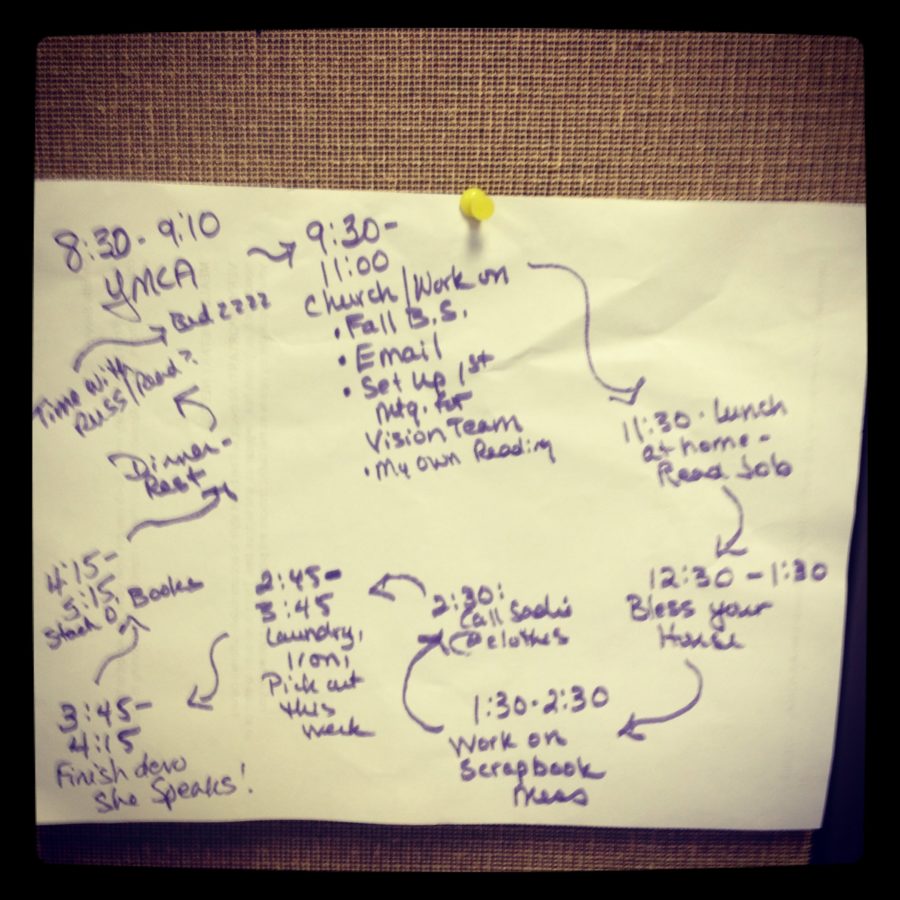 8:30 - 9:10
YMCA
9:30 -
11:00
Church / Work on
• Fall B.S.
• Email
• Set up 1st
mtg. for
Vision Team
• My own Reading
11:30 - Lunch
at home -
Read Job
12:30 - 1:30
Bless your
House
1:30 - 2:30
Work on
Scrapbook
Mess
2:30:
Call Sadie
@ clothes
2:45 -
3:45
Laundry,
Iron,
Pick out
this
week
3:45 -
4:15
Finish devo
She Speaks!
4:15 -
5:15
Stack O' Books
Dinner -
Rest
Time with
Russ / Read?
Bed zzzz